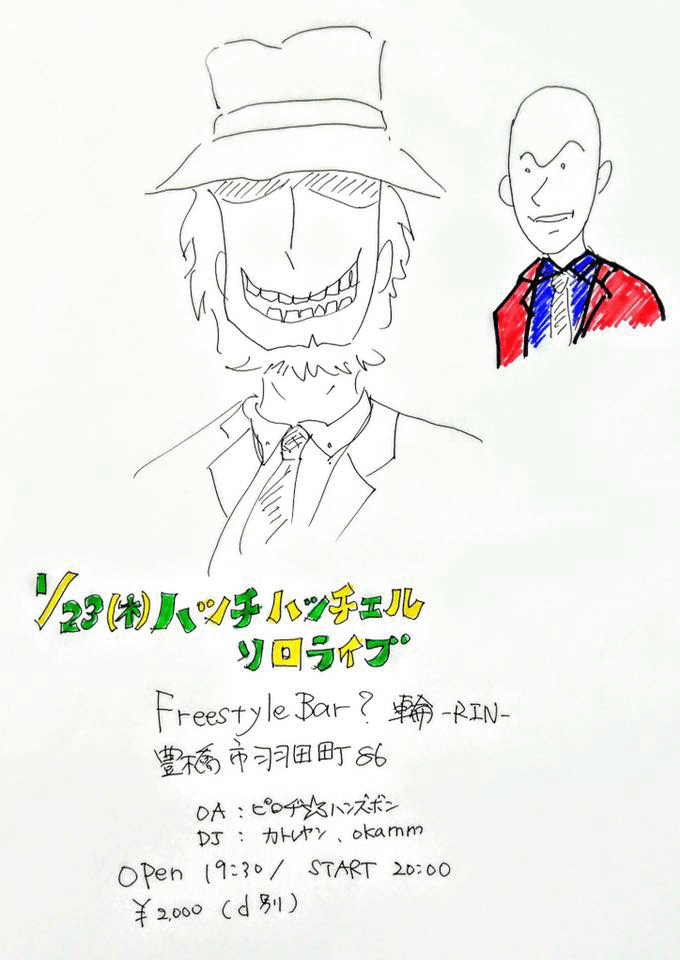 1/23(木)バッチハッチェル
ソロライブ
Freestyle Bar? 輪 -RIN-
豊橋市羽田町86
OA : ピロヂ☆ハンズボン
DJ : カトレヤン、okamm
OPen 19:30/ START 20:00
¥2,000 (d別)